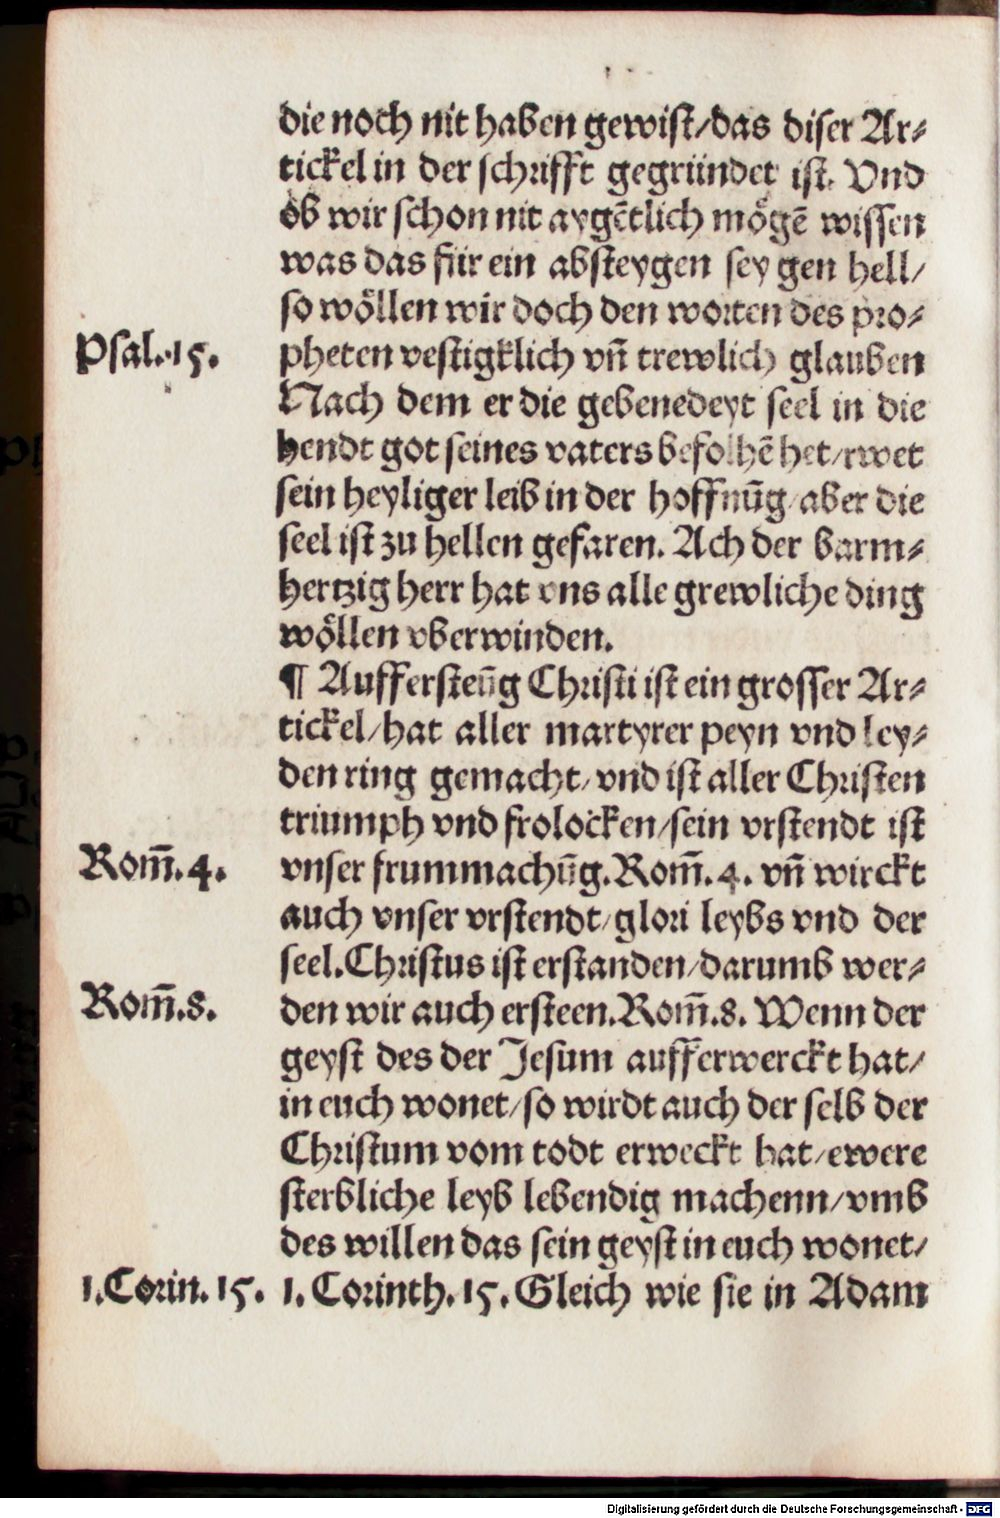 die noch nit haben gewist/das diser Ar⸗
tickel in der schrifft gegründet ist. Vnd
ob wir schon nit aygētlich mögē wissen
was das für ein absteygen sey gen hell/
so wöllen wir doch den worten des pro⸗
Psal. 15. pheten vestigklich vn̄ trewlich glauben
Nach dem er die gebenedeyt seel in die
hendt got seines vaters befolhē het/rwet
sein heyliger leib in der hoffnūg/aber die
seel ist zu hellen gefaren. Ach der barm⸗
hertzig herr hat vns alle grewliche ding
wöllen vberwinden.
¶ Auffersteūg Christi ist ein grosser Ar⸗
tickel/hat aller martyrer peyn vnd ley⸗
den ring gemacht/vnd ist aller Christen
triumph vnd frolocken/sein vrstendt ist
Rom̄. 4. vnser frummachūg. Rom̄. 4. vn̄ wirckt
auch vnser vrstendt/glori leybs vnd der
seel. Christus ist erstanden/darumb wer⸗
Rom̄. 8. den wir auch ersteen. Rom̄. 8. Wenn der
geyst des der Jesum aufferwerckt hat/
in euch wonet/so wirdt auch der selb der
Christum vom todt erweckt hat/ewere
sterbliche leyb lebendig machenn/vmb
des willen das sein geyst in euch wonet/
1. Corin. 15. 1. Corinth. 15. Gleich wie sie in Adam
Digitalisierung gefördert durch die Deutsche Forschungsgemeinschaft - DFG